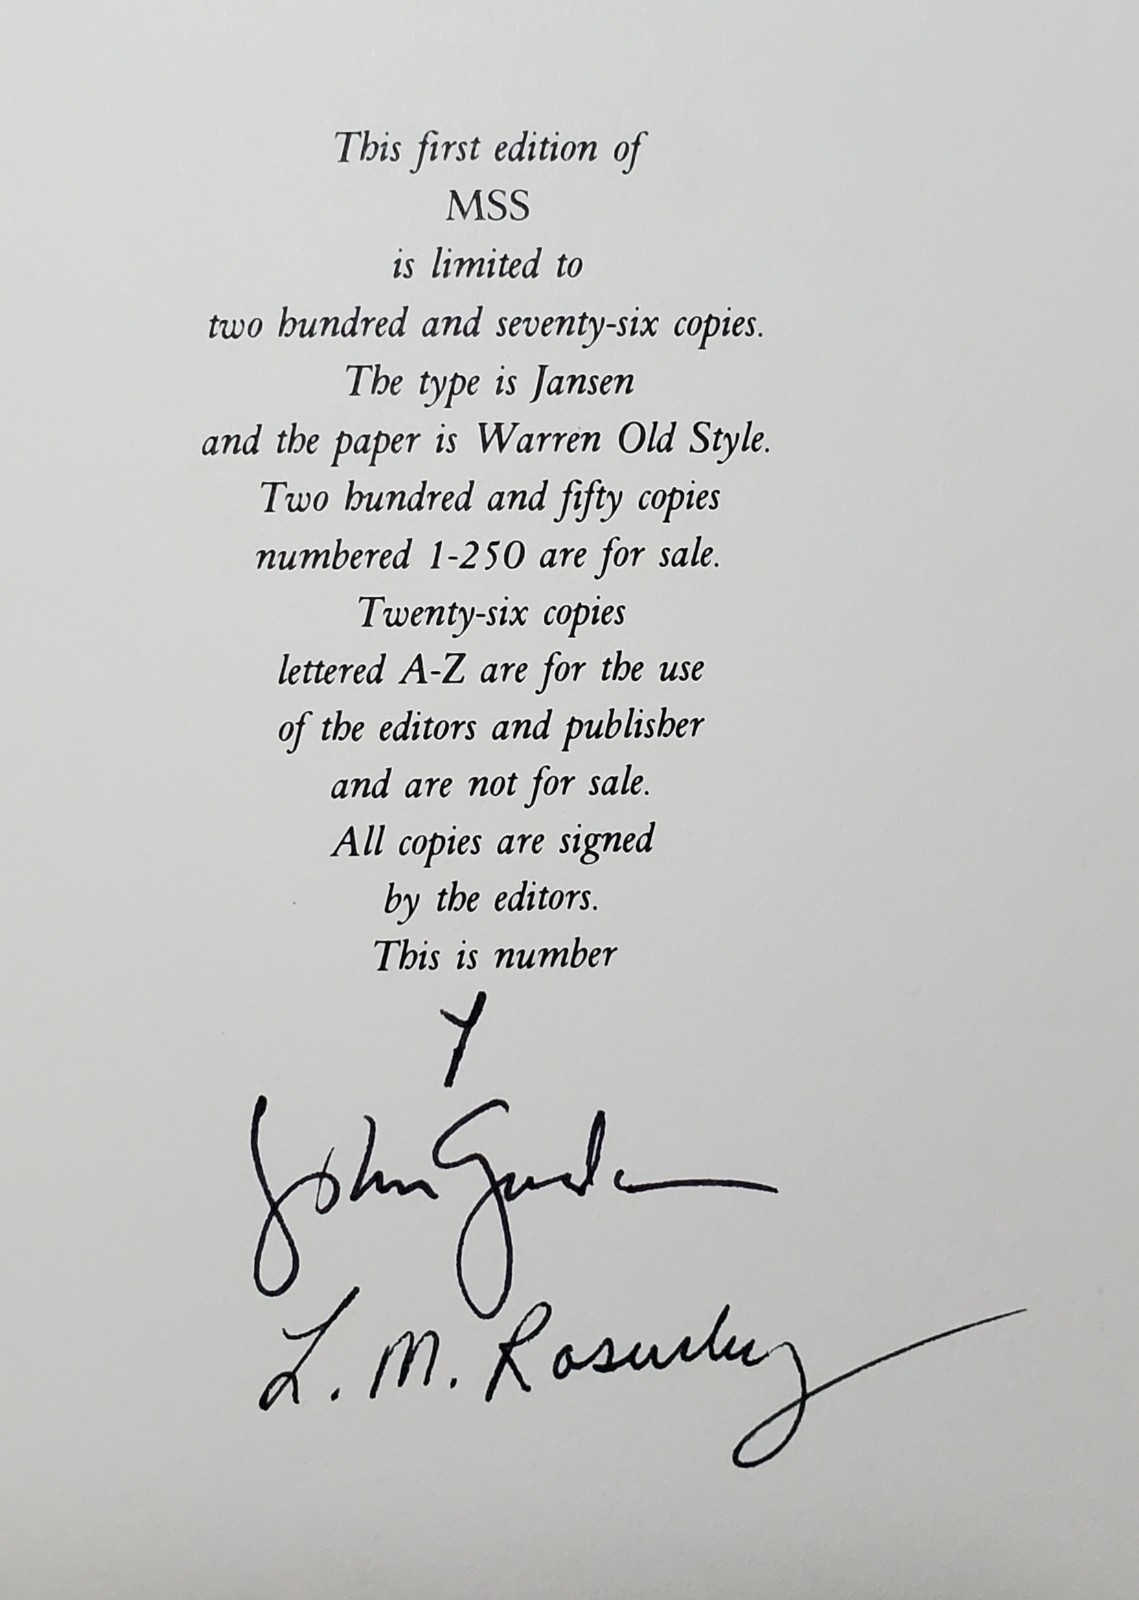 This first edition of
MSS
is limited to
two hundred and seventy-six copies.
The type is Jansen
and the paper is Warren Old Style.
Two hundred and fifty copies
numbered 1-250 are for sale.
Twenty-six copies
lettered A-Z are for the use
of the editors and publisher
and are not for sale.
All copies are signed
by the editors.
This is number
Y
John Gardner
L. M. Rosenberg